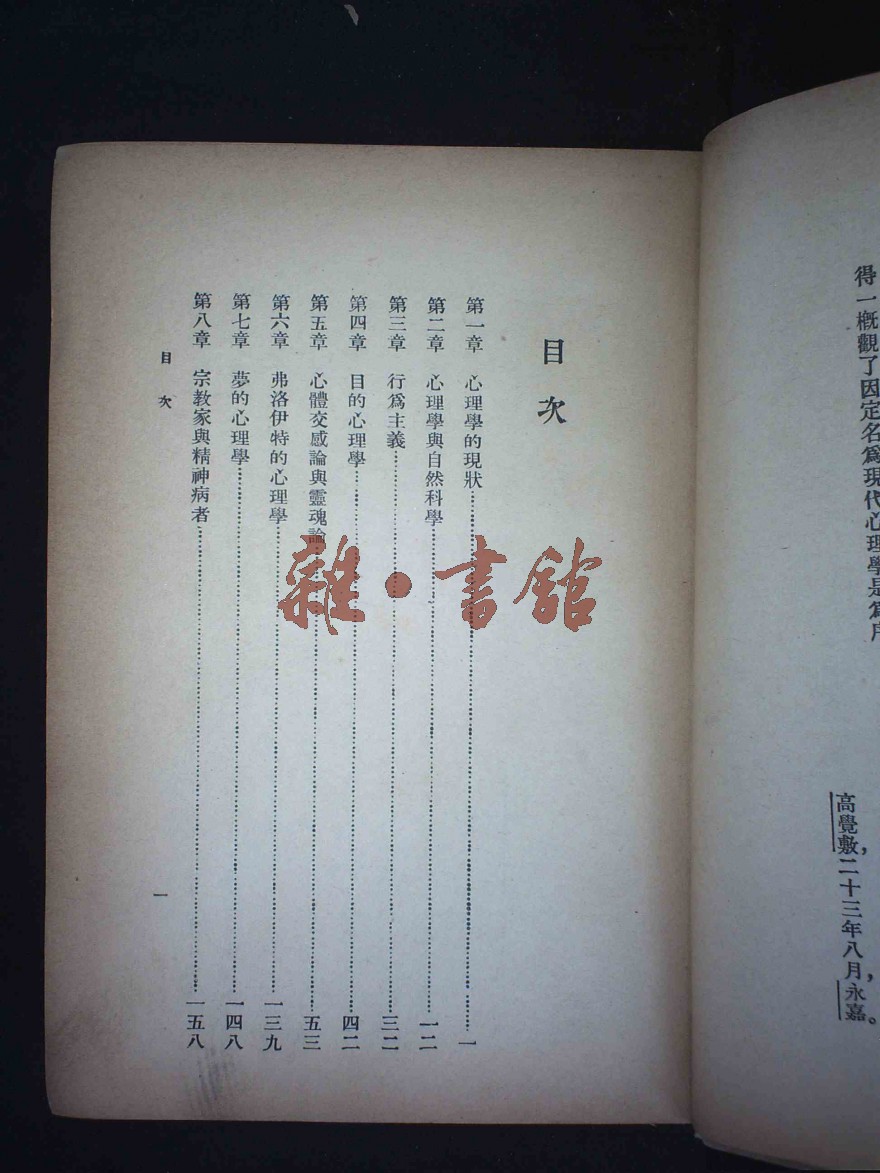 得一概觀了因定名爲現代心理學是爲序
高覺敷，二十三年八月，永嘉。
目次
第一章 心理學的現狀 一
第二章 心理學與自然科學 一二
第三章 行爲主義 三二
第四章 目的心理學 四二
第五章 心體交感論與靈魂論 五三
第六章 弗洛伊特的心理學 一三九
第七章 夢的心理學 一四八
第八章 宗教家與精神病者 一五八
目次 一
雜·書館